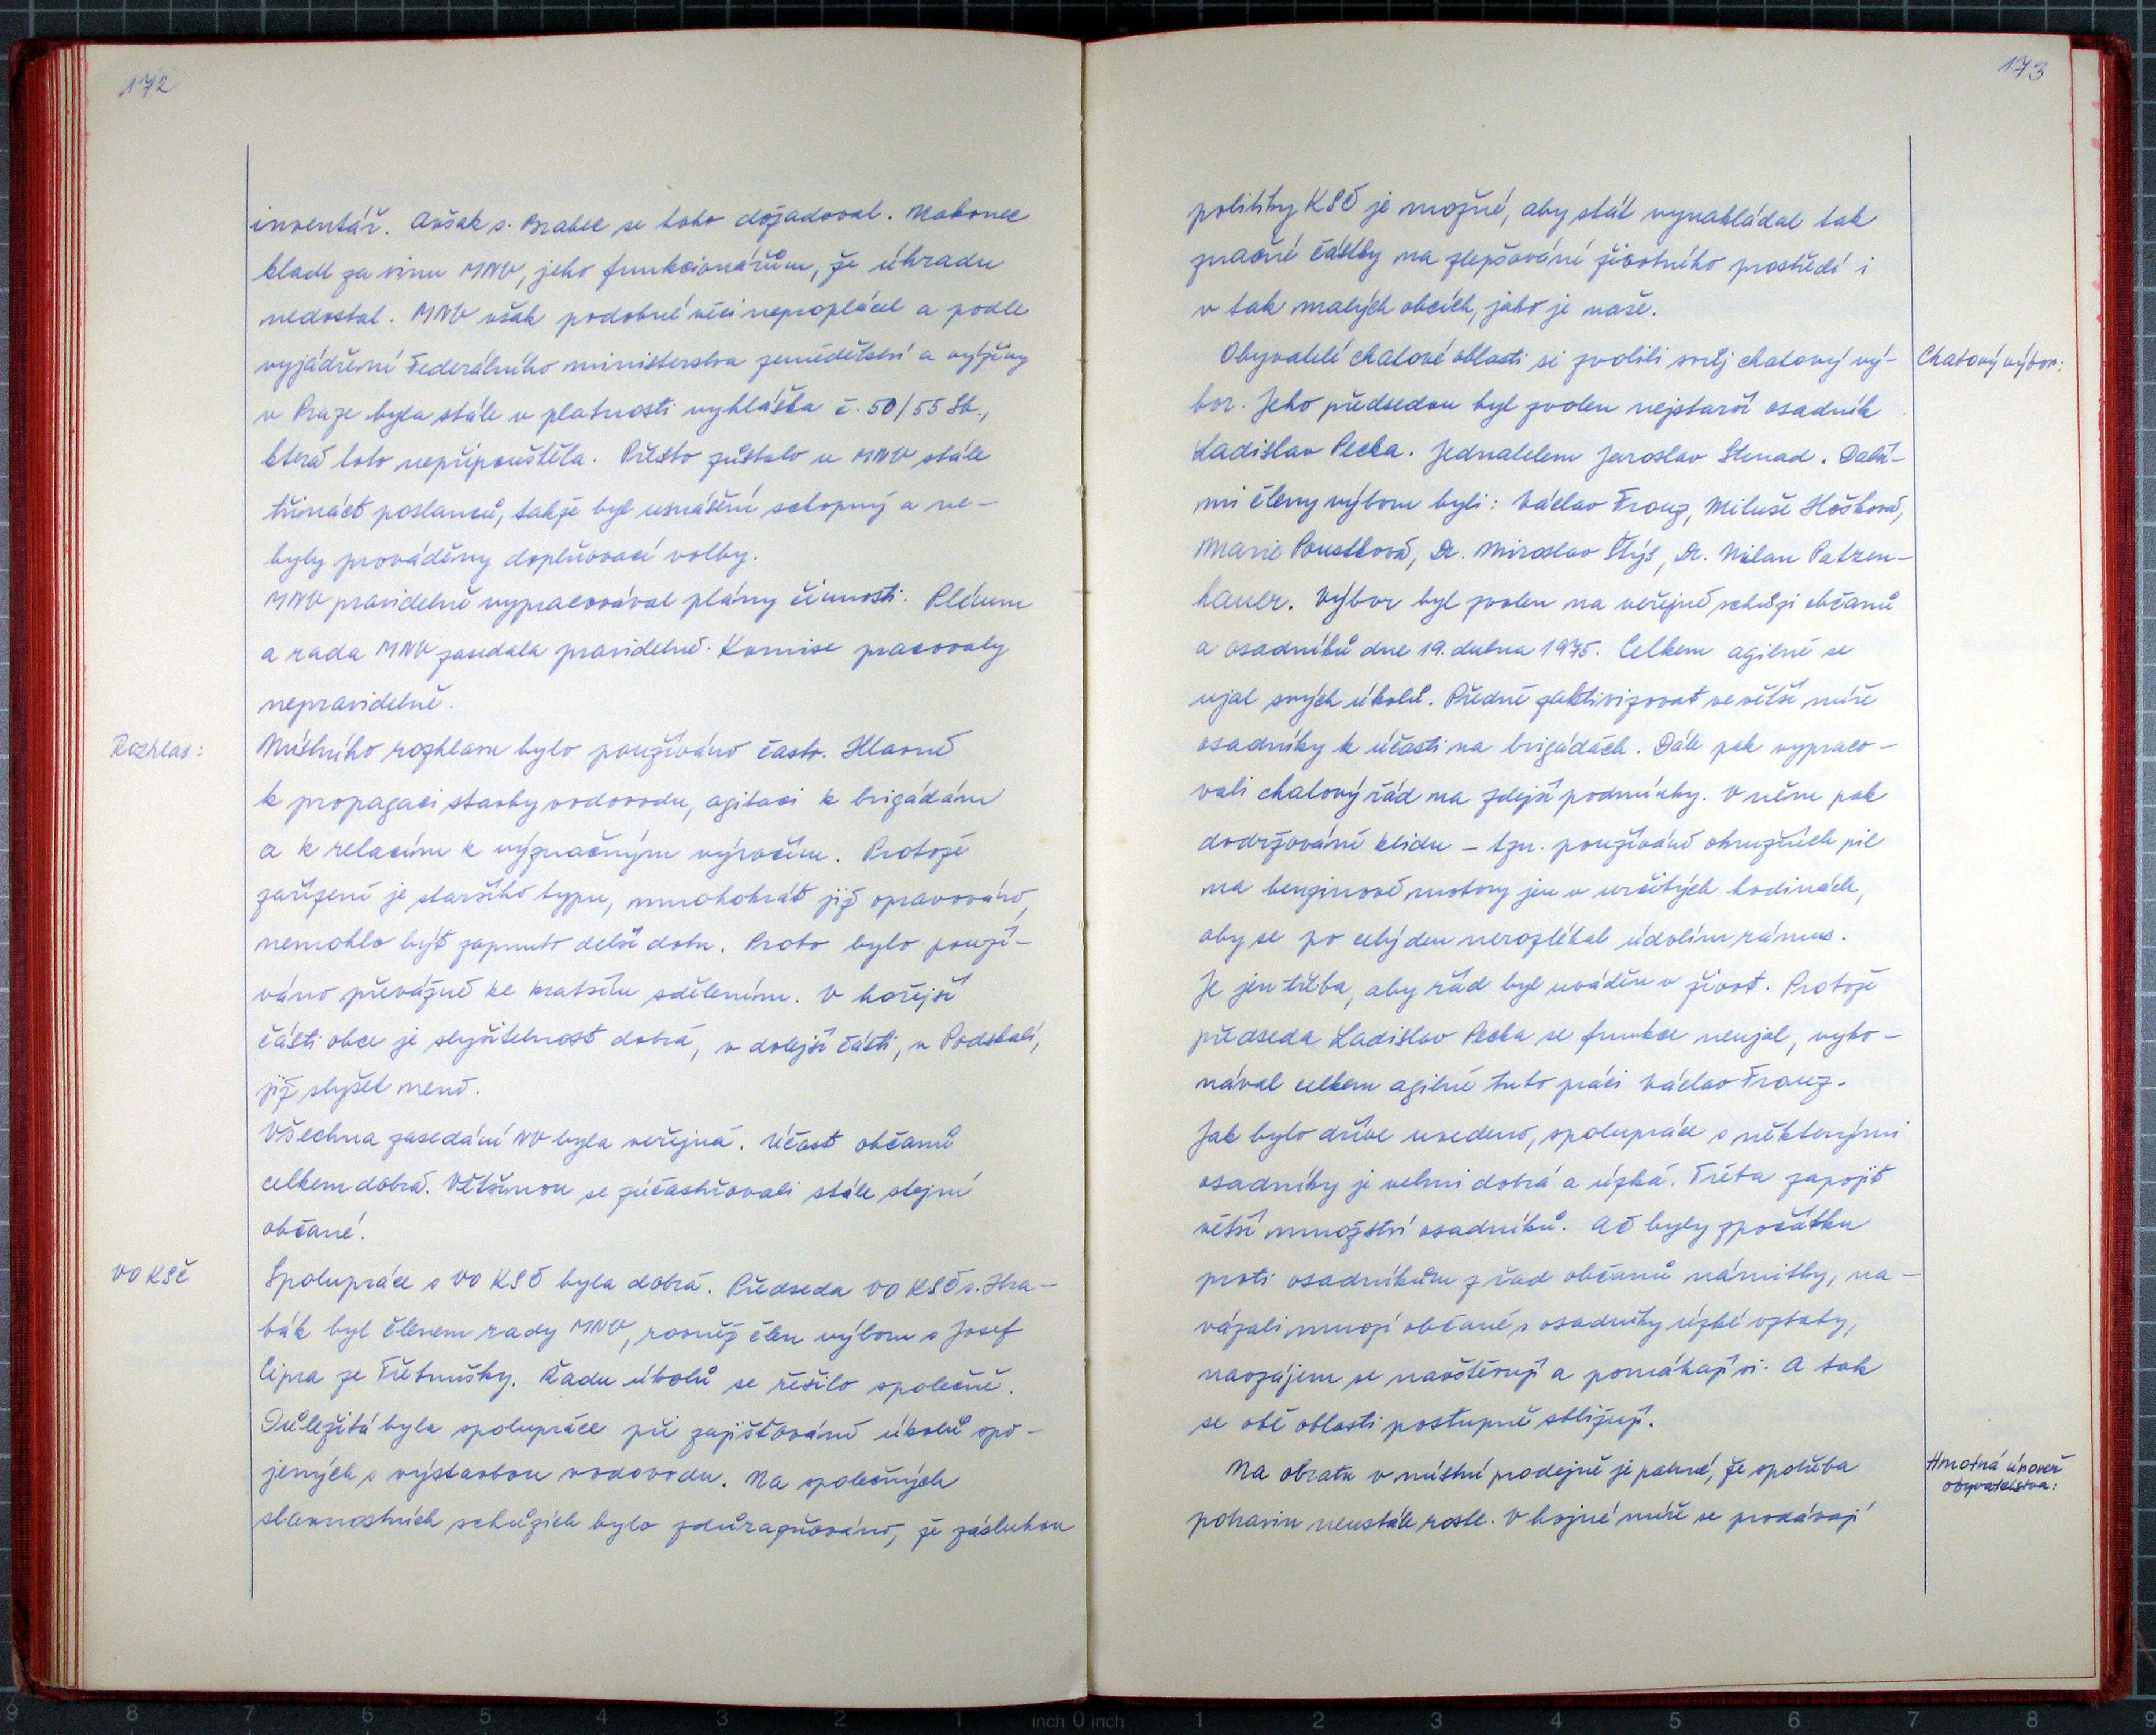 172
inventář. Avšak s. Brabec se toho dožadoval. Nakonec
kladl za vinu MNV, jeho funkcionářům, že úhradu
nedostal. MNV však podobné věci neproplácel a podle
vyjádření Federálního ministerstva zemědělství a výživy
v Praze byla stále v platnosti vyhláška č. 50/55 Sb.,
která toto nepřipouštěla. Přesto zůstalo u MNV stále
třináct poslanců, takže byl usnášení schopný a ne-
byly prováděny doplňovací volby.
MNV pravidelně vypracovával plány činnosti. Plénum
a rada MNV zasedala pravidelně. Komise pracovaly
nepravidelně.
Rozhlas:
Místního rozhlasu bylo používáno často. Hlavně
k propagaci stavby vodovodu, agitaci k brigádám
a k relacím k význačným výročím. Protože
zařízení je staršího typu, mnohokrát již opravováno,
nemohlo být zapnuto delší dobu. Proto bylo použí-
váno převážně ke kratším sdělením. V hořejší
části obce je slyšitelnost dobrá, v dolejší části, v Podskalí,
již slyšet méně.
Všechna zasedání NV byla veřejná. Účast občanů
celkem dobrá. Většinou se zúčastňovali stále stejní
občané.
VO KSČ
Spolupráce s VO KSČ byla dobrá. Předseda VO KSČ s. Hra-
bák byl členem rady MNV, rovněž člen výboru s Josef
Cipra ze Třetnušky. Řadu úkolů se řešilo společně.
Důležitá byla spolupráce při zajišťování úkolů spo-
jených s výstavbou vodovodu. Na společných
slavnostních schůzích bylo zdůrazňováno, že zásluhou
173
politiky KSČ je možné, aby stát vynakládal tak
značné částky na zlepšování životního prostředí i
v tak malých obcích, jako je naše.
Chatový výbor:
Obyvatelé chatové oblasti si zvolili svůj chatový vý-
bor. Jeho předsedou byl zvolen nejstarší osadník
Ladislav Pecka. Jednatelem Jaroslav Stenad. Další-
mi členy výboru byli: Václav Franz, Miluše Hošková,
Marie Poustková, Dr. Miroslav Štýs, Dr. Milan Patzen-
hauer. Výbor byl zvolen na veřejné schůzi občanů
a osadníků dne 19. dubna 1975. Celkem agilně se
ujal svých úkolů. Předně zaktivizovat ve větší míře
osadníky k účasti na brigádách. Dále pak vypraco-
vali chatový řád na zdejší podmínky. V něm pak
dodržování klidu – tzn. používání okružních pil
na benzinové motory jen v určitých hodinách,
aby se po celý den nerozléhal údolím rámus.
Je jen třeba, aby řád byl uváděn v život. Protože
předseda Ladislav Pecka se funkce neujal, vyko-
nával celkem agilně tuto práci Václav Franz.
Jak bylo dříve uvedeno, spolupráce s některými
osadníky je velmi dobrá a úzká. Třeba zapojit
větší množství osadníků. Ač byly zpočátku
proti osadníkům z řad občanů námitky, na-
vázali mnozí občané s osadníky úzké vztahy,
navzájem se navštěvují a pomáhají si. A tak
se obě oblasti postupně sbližují.
Hmotná úroveň
obyvatelstva:
Na obratu v místní prodejně je patrné, že spotřeba
potravin neustále roste. V hojné míře se prodávají